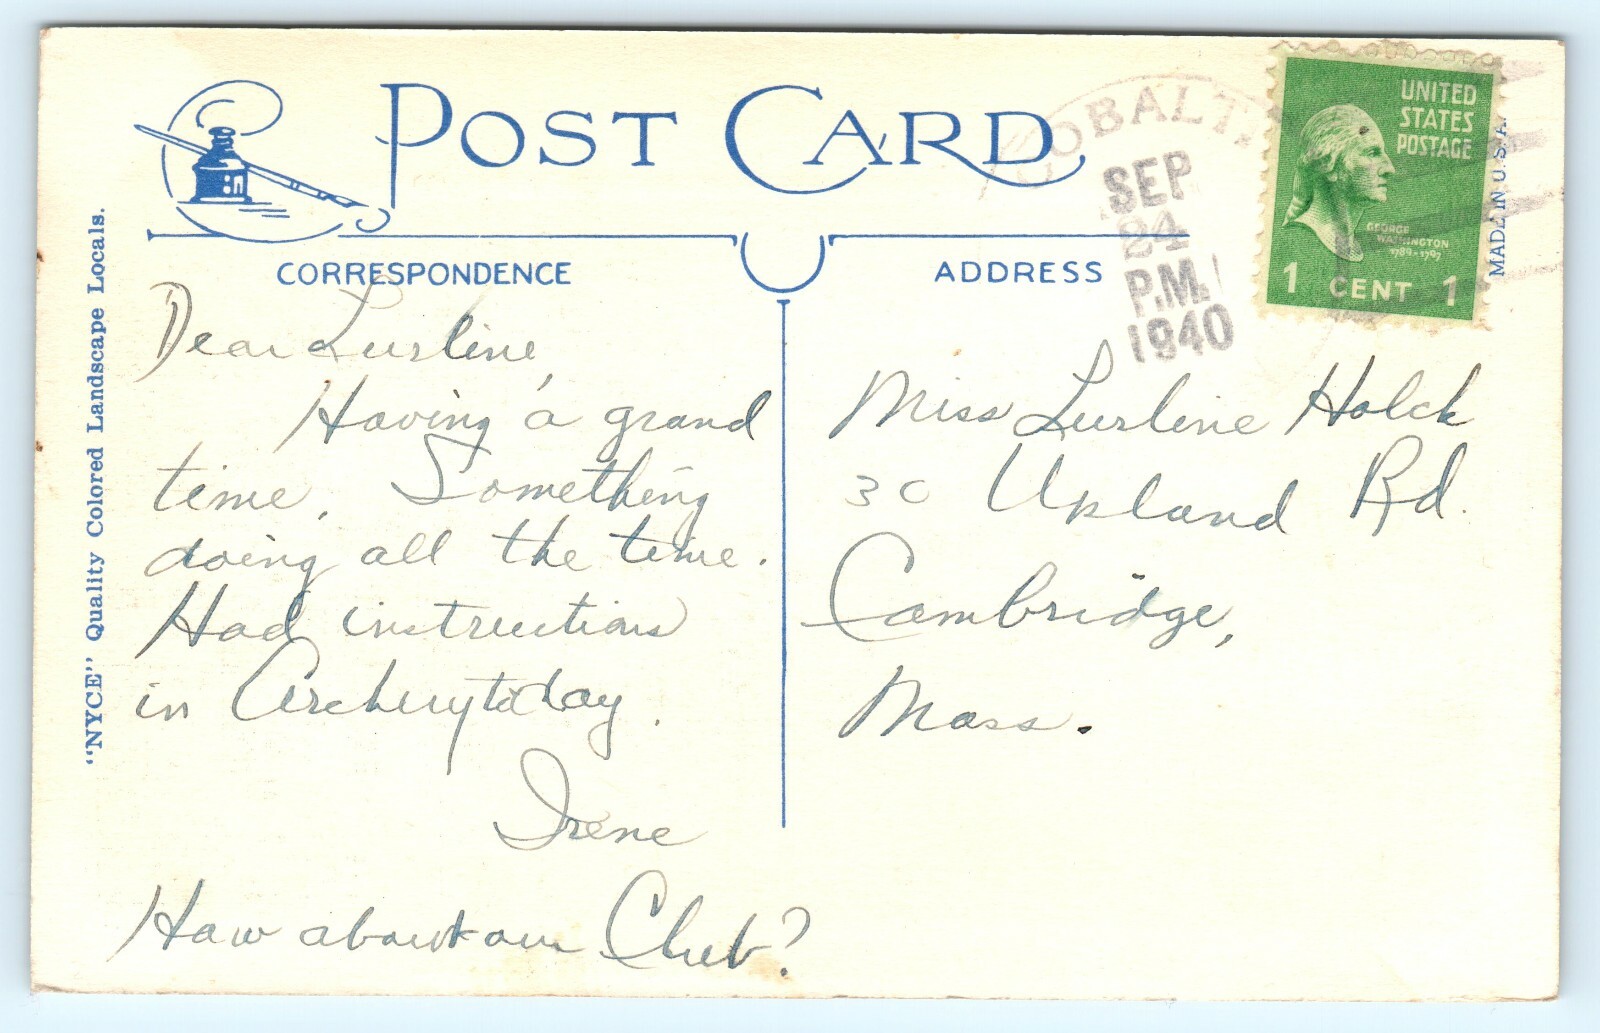 POST CARD
COBALT,
SEP
24
P.M.
1940
UNITED
STATES
POSTAGE
GEORGE
WASHINGTON
1789-1797
1 CENT 1
MADE IN U.S.A.
"NYCE" Quality Colored Landscape Locals.
CORRESPONDENCE
ADDRESS
Dear Lurline,
Having a grand
time. Something
doing all the time.
Had instructions
in Archery today.
Irene
How about our Club?
Miss Lurline Holck
30 Upland Rd.
Cambridge,
Mass.